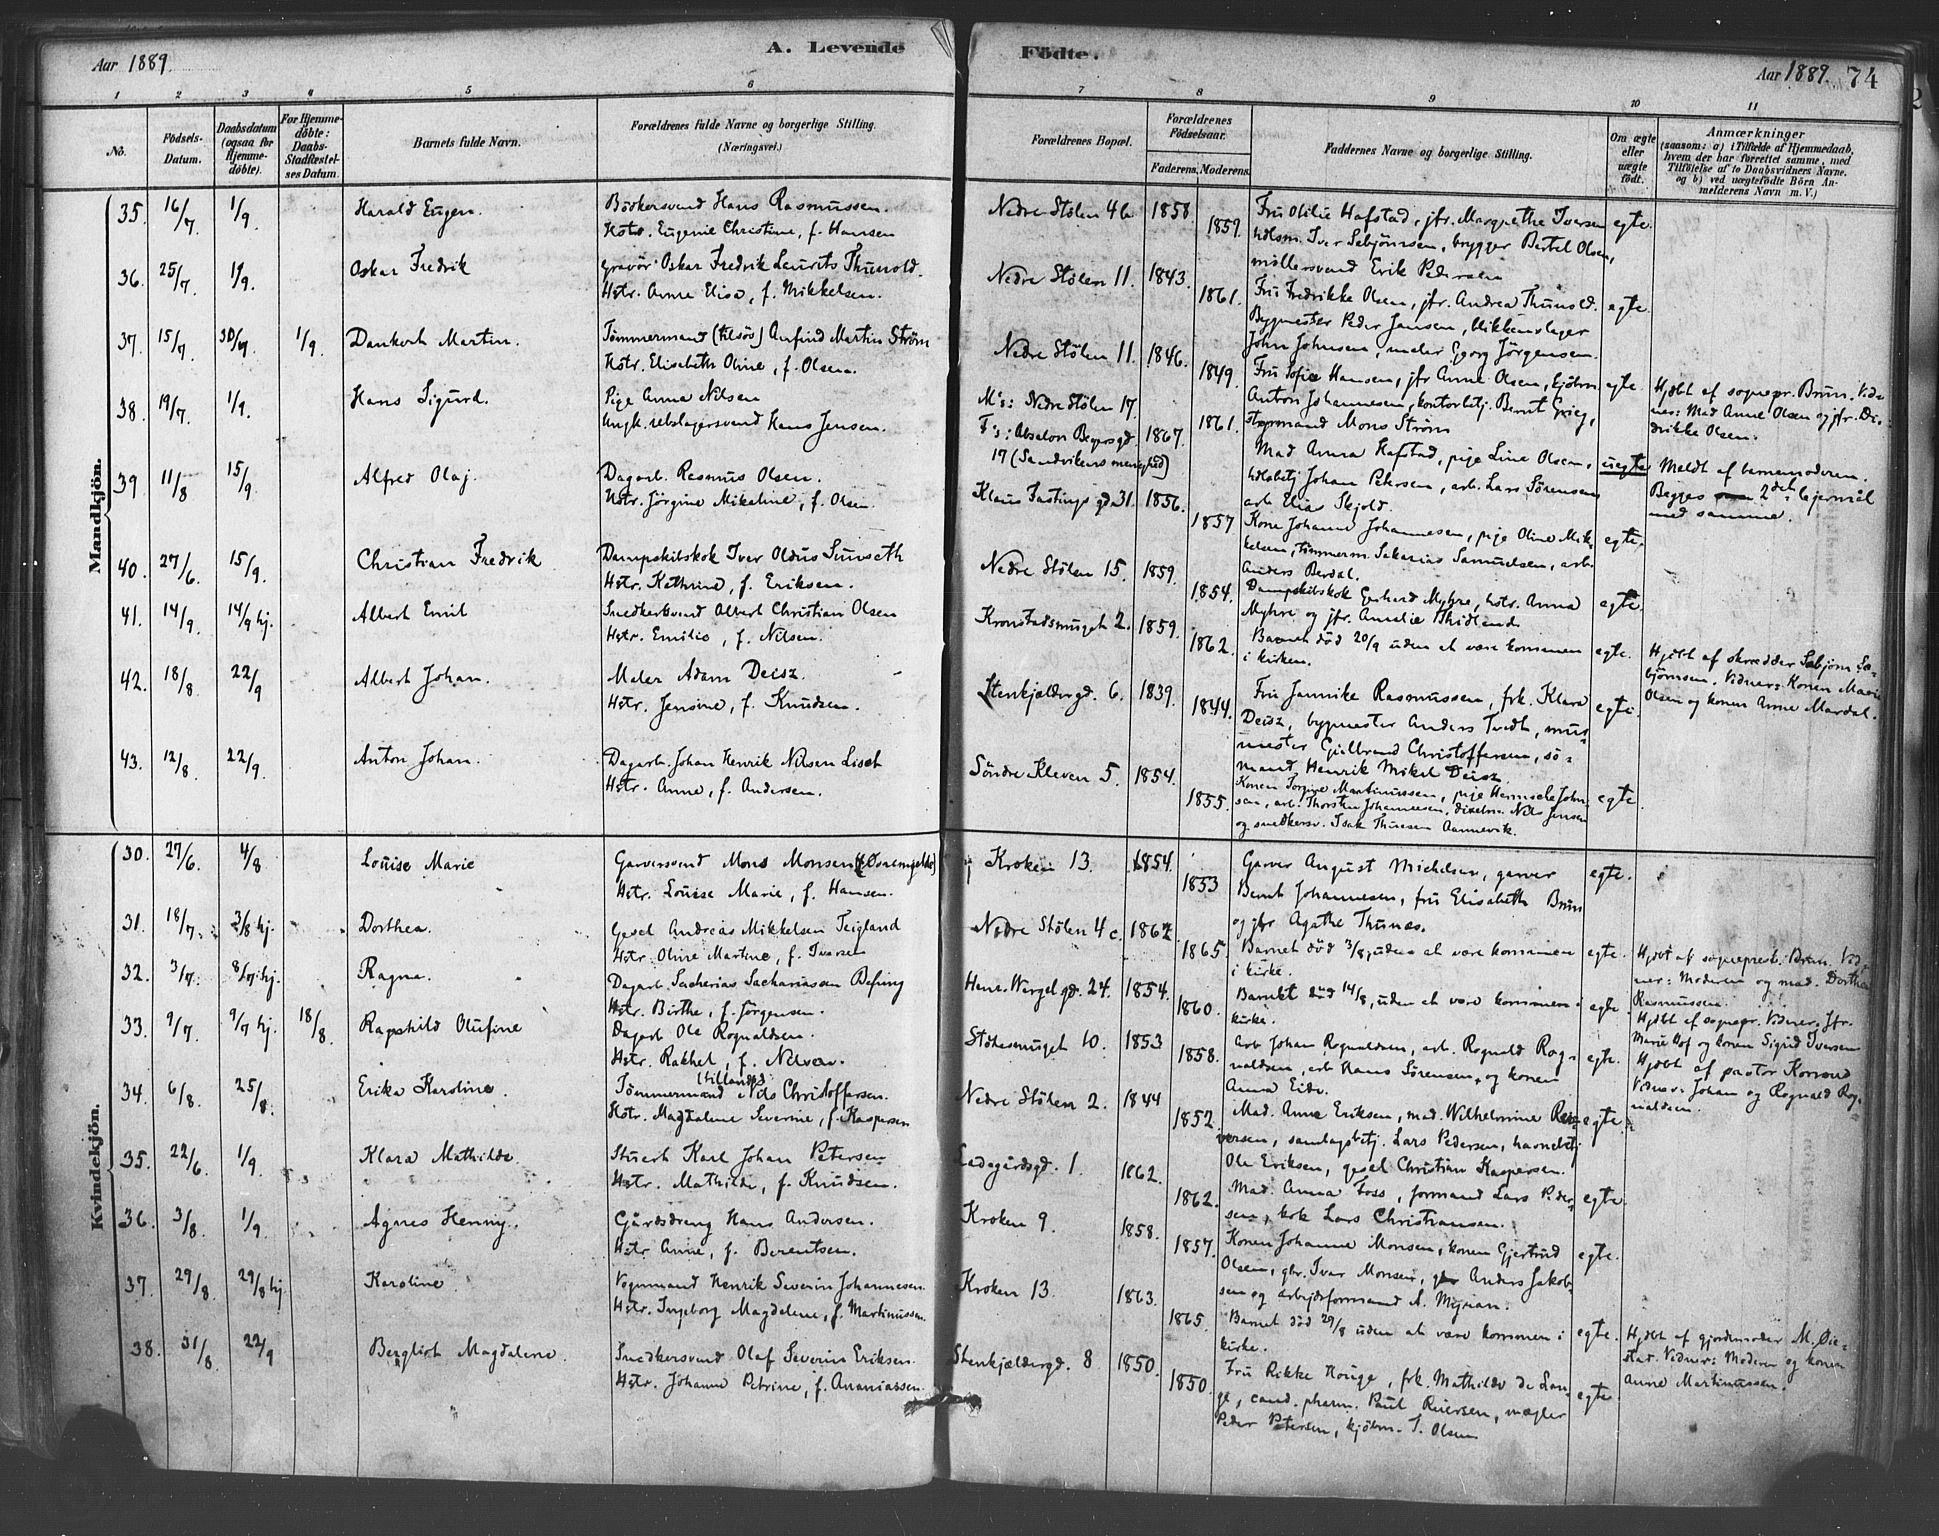 Aar 1889.
A. Levende Födte.
Aar 1889. 74
1 2 3 4 5 6 7 8 9 10 11
No.
Födsels-Datum.
Daabsdatum (ogsaa for Hjemmedöbte).
For Hjemmedöbte: Daabs-Stadfæstelses Datum.
Barnets fulde Navn.
Forældrenes fulde Navne og borgerlige Stilling.
(Næringsvei.)
Forældrenes Bopæl.
Forældrenes Födselsaar.
Faderens. Moderens.
Faddernes Navne og borgerlige Stilling.
Om ægte eller uægte födt.
Anmærkninger
(saasom: a) i Tilfælde af Hjemmedaab, hvem der har forrettet samme, med Tilföielse af to Daabsvidners Navne. og b) ved uægtefödte Börn Anmelderens Navn m. V.)
Mandkjön.
35. 16/7 1/9. Harald Eugen. Bödkersvend Hans Rasmussen. Nedre Stölen 4b. 1858.
Hstr. Eugenie Christine, f. Hansen 1859. egte.
Fru Olilie Hafstad, jfr. Margrethe Iversen
Iver Sebjörnsen, brygger Bertel Olsen,
möllersvend Erik Pedersen
36. 25/7. 1/9. Oskar Fredrik Gravör Oskar Fredrik Laurits Thunold. Nedre Stölen 11. 1843.
Hstr. Anne Elise, f. Mikkelsen. 1861. egte.
Fru Fredrikke Olsen, jfr. Andrea Thunold.
Bygmester Peder Jansen, blikkenslager
John Johnsen, maler Georg Jörgensen.
37. 15/7. 30/7. 1/9. Dankert Martin. Tömmermand (tilsös) Anfind Martin Ström Nedre Stölen 11. 1846.
Hstr. Elisabeth Oline, f. Olsen. 1849. egte.
Fru Sofie Hansen, jfr Anne Olsen, kjöbm.
Anton Johannesen, kontorbetj. Bernt Grieg,
styrmand Mons Ström
Hjdbt af sognepr. Brun. Vidner: Mad Anne Olsen og jfr. Didrikke Olsen.
38. 19/7. 1/9. Hans Sigurd. Pige Anna Nilsen M's: Nedre Stölen 17.
Ungk. rebslagersvend Hans Jensen. F's: Absalon Beyersgd. 1867. 1861.
17 (Sandvikens menighed)
Mad Anna Hafstad, pige Line Olsen, uegte
hdlsbetj Johan Petersen, arb. Lars Sörensen
arb. Elias Skjold.
Meldt af barnemoderen.
Begges 2det lejermål
med samme.
39 11/8 15/9. Alfred Olaj. Dagarb. Rasmus Olsen. Klaus Fastings gd 31. 1856.
Hstr. Jörgine Mikeline, f. Olsen. 1857 egte.
Kone Johanne Johannesen, pige Oline Mikkelsen, tömmerm. Sakarias Samuelsen, arb.
Anders Berdal.
40. 27/6. 15/9. Christian Fredrik Dampskibskok Iver Olaus Sunseth Nedre Stölen 15. 1859.
Hstr. Kathrine, f. Eriksen. 1854. egte.
Dampskibskok Gerhard Myhre, hstr. Anna
Myhre og jfr. Amalie
41. 14/9. 14/9 hj. Albert Emil Snedkersvend Albert Christian Olsen Kronstadsmuget 2. 1859.
Hstr. Emilie, f. Nilsen. 1862. egte.
Barnet död 20/9 uden at være kommen
i kirken.
Hjdbt af skrædder Sebjörn Sæbjörnsen. Vidner: Konen Marie
Olsen og konen Anne Mardal.
42. 18/8 22/9 Albert Johan. Maler Adam Deisz. Stenkjeldergd. 6. 1839.
Hstr. Jensine, f. Knudsen. 1844. egte.
Fru Jannike Rasmussen, frk. Klara
Deisz, bygmester Anders Tvedt, murmester Gulbrand Christoffersen, sömand Henrik Mikel Deisz.
43. 12/8 22/9. Anton Johan. Dagarb. Johan Henrik Nilsen Liset Söndre Kleven 5. 1854.
Hstr. Anne, f. Andersen. 1855. egte.
Konen Martinussen, pige Johnsen, arb. Thorsten Johannesen, Nils Jensen
og snedkersv. Isak Thuesen Aannevik.
Kvindekjön.
30. 27/6. 4/8 Louise Marie Garversvend Mons Monsen Kroken 13. 1854.
Hstr. Louise Marie, f. Hansen. 1853 egte.
Garver August Michelsen, garver
Bernt Johannesen, fru Elisabeth Brun
og jfr Agathe Thunæs.
31. 18/7. 3/8 hj. Dorthea. Gesel Andreas Mikkelsen Teigland Nedre Stölen 4 c. 1862.
Hstr. Oline Martine, f. Iversen 1865. egte.
Barnet död 3/8, uden at være kommen
i kirke.
Hjdbt af sogneprest Brun. Vidner: Moderen og mad. Dorthea
Rasmussen.
32. 3/7. Ragna. Dagarb. Sacharias Sachariassen Hans Wergel. gd. 24. 1854.
Hstr. Birthe, f. Jörgensen. 1860. egte.
Barnet död 14/8, uden at være kommen i
kirke.
Hjdbt af sognepr. Vidner. Jfr.
Marie Hof og konen Sigrid Iversen
33. 9/7. 9/7 hj. 18/8. Ragnhild Olufine Dagarb Ole Rognaldsen. Stölesmuget 10. 1853
Hstr. Rakkel, f. 1858. egte.
Arb Johan Rognaldsen, arb. Rognald Rognaldsen, arb Hans Sörensen, og konen
Anna Eide.
Hjdbt af pastor Konow
Vidner: Johan og Rognald Rognaldsen.
34. 6/8. 25/8. Erika Karoline. Tömmermand (tillands) Nils Christoffersen. Nedre Stölen 2. 1844
Hstr. Magdalene Severine, f. Kaspersen 1852. egte.
Mad. Anne Eriksen, mad. Wilhelmine
Lars Pedersen, havnebetj
Ole Eriksen, gesel Christian Kaspersen.
35. 22/6. 1/9. Klara Mathilde. Stuert Karl Johan Petersen Ladegårdsgd. 1. 1862.
Hstr. Mathilde, f. Knudsen. 1862. egte.
Mad. Anna Foss, formand Lars Pedersen, kok Lars Christiansen.
36. 3/8. 1/9. Agnes Henny. Gårdsdreng Hans Andersen. Kroken 9. 1858.
Hstr Anne, f. Berentsen. 1857. egte.
Konen Johanne Monsen, konen Gjertrud
Olsen, gbr. Ivar Monsen, gbr Anders Jakobsen og arbejdsformand A. Myran.
37. 29/8. 29/8 hj. Karoline. Vognmand Henrik Severin Johannesen. Kroken 13. 1863.
Hstr. Ingeborg Magdalene, f. Martinussen. 1865. egte.
Barnet död 29/8 uden at være kommen i
kirke.
Hjdbt af gjordemoder M.
Vidner: Moderen og konen
Anne Martinussen.
38. 31/8. 22/9 Bergliot Magdalene. Snedkersvend Olaf Severin Eriksen. Stenkjeldergd. 8 1850.
Hstr. Johanne Petrine, f. Ananiassen. 1850. egte.
Fru Rikke Houge, frk. Mathilde de Lange, cand. pharm. Paul Riversen, mægler
Peder Petersen, kjöbm. I. Olsen